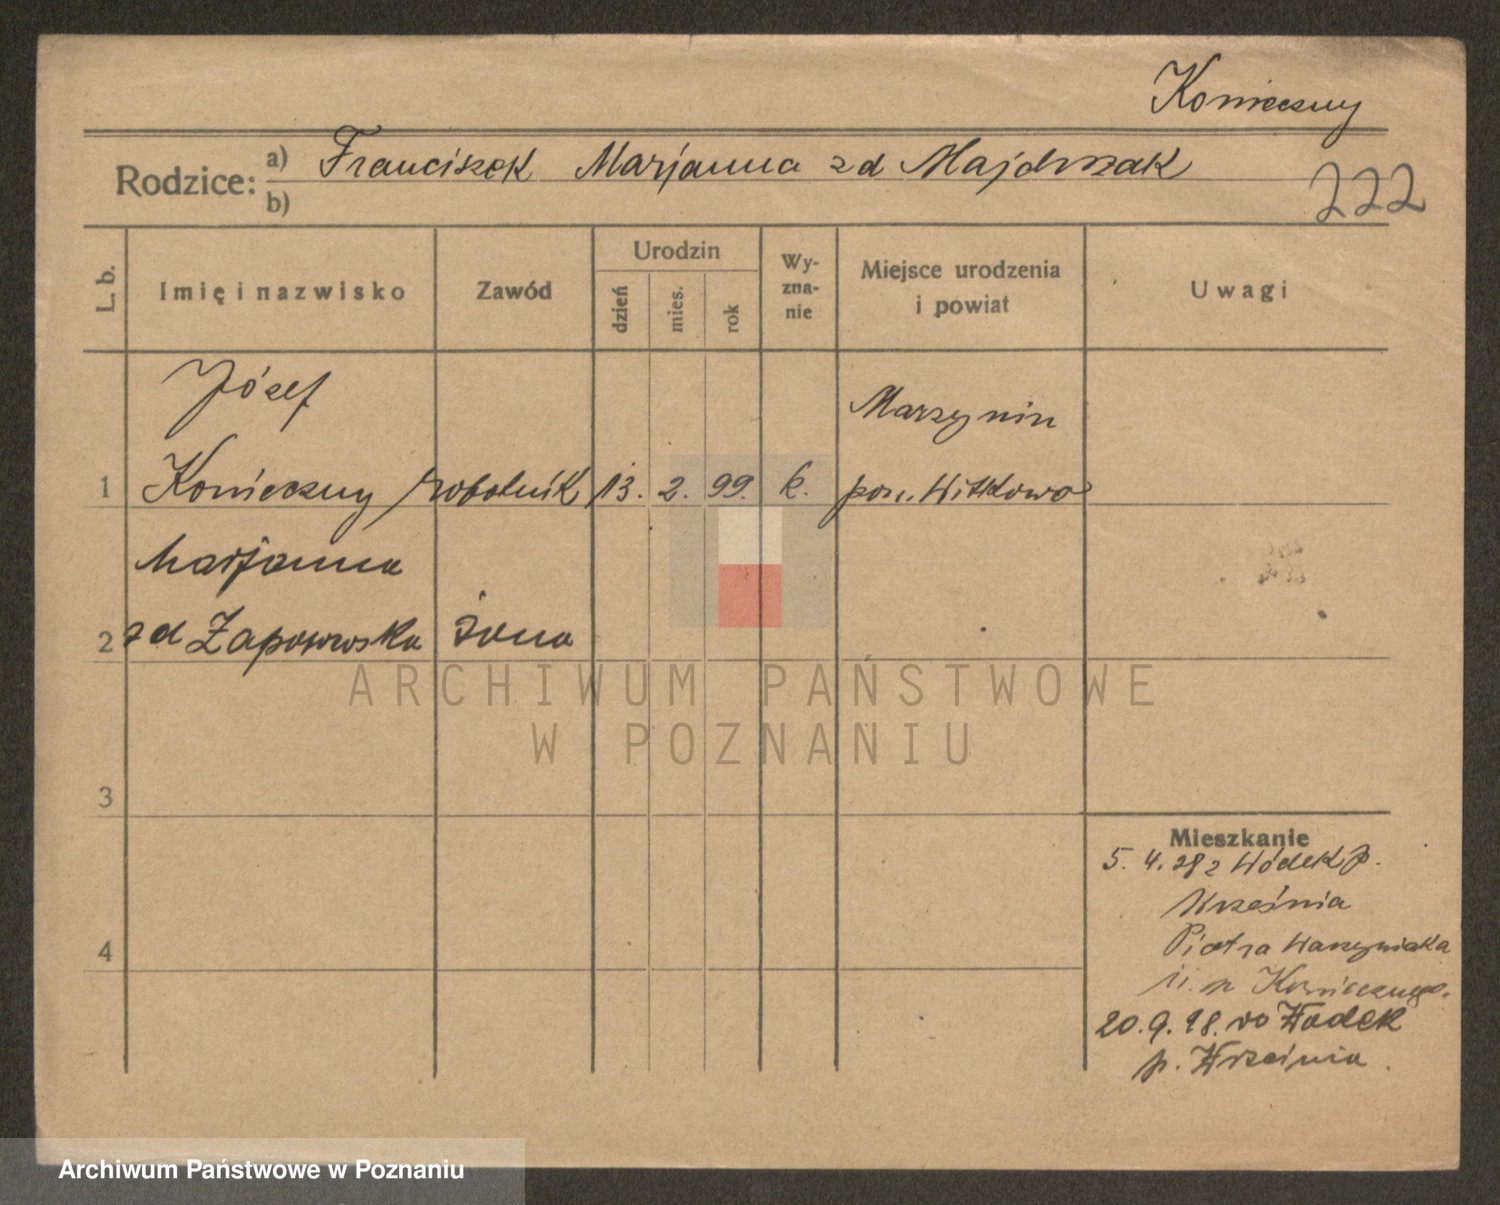 Konieczny
Rodzice: a) Franciszek Marjanna zd Majdrzak
b)
222
L. b.
Imię i nazwisko
Zawód
Urodzin
dzień
mies.
rok
Wy-
zna-
nie
Miejsce urodzenia
i powiat
Uwagi
Józef
Marzynin
1 Konieczny robotnik 13. 2. 99. k. pow. Witkowo
Marjanna
2 zd żona
3
4
Mieszkanie
5. 4. 28 z Wódek p.
Września
Piotra
u. p. Koniecznego.
20. 9. 28. do Wodek
p. Września.
ARCHIWUM PAŃSTWOWE
W POZNANIU
Archiwum Państwowe w Poznaniu